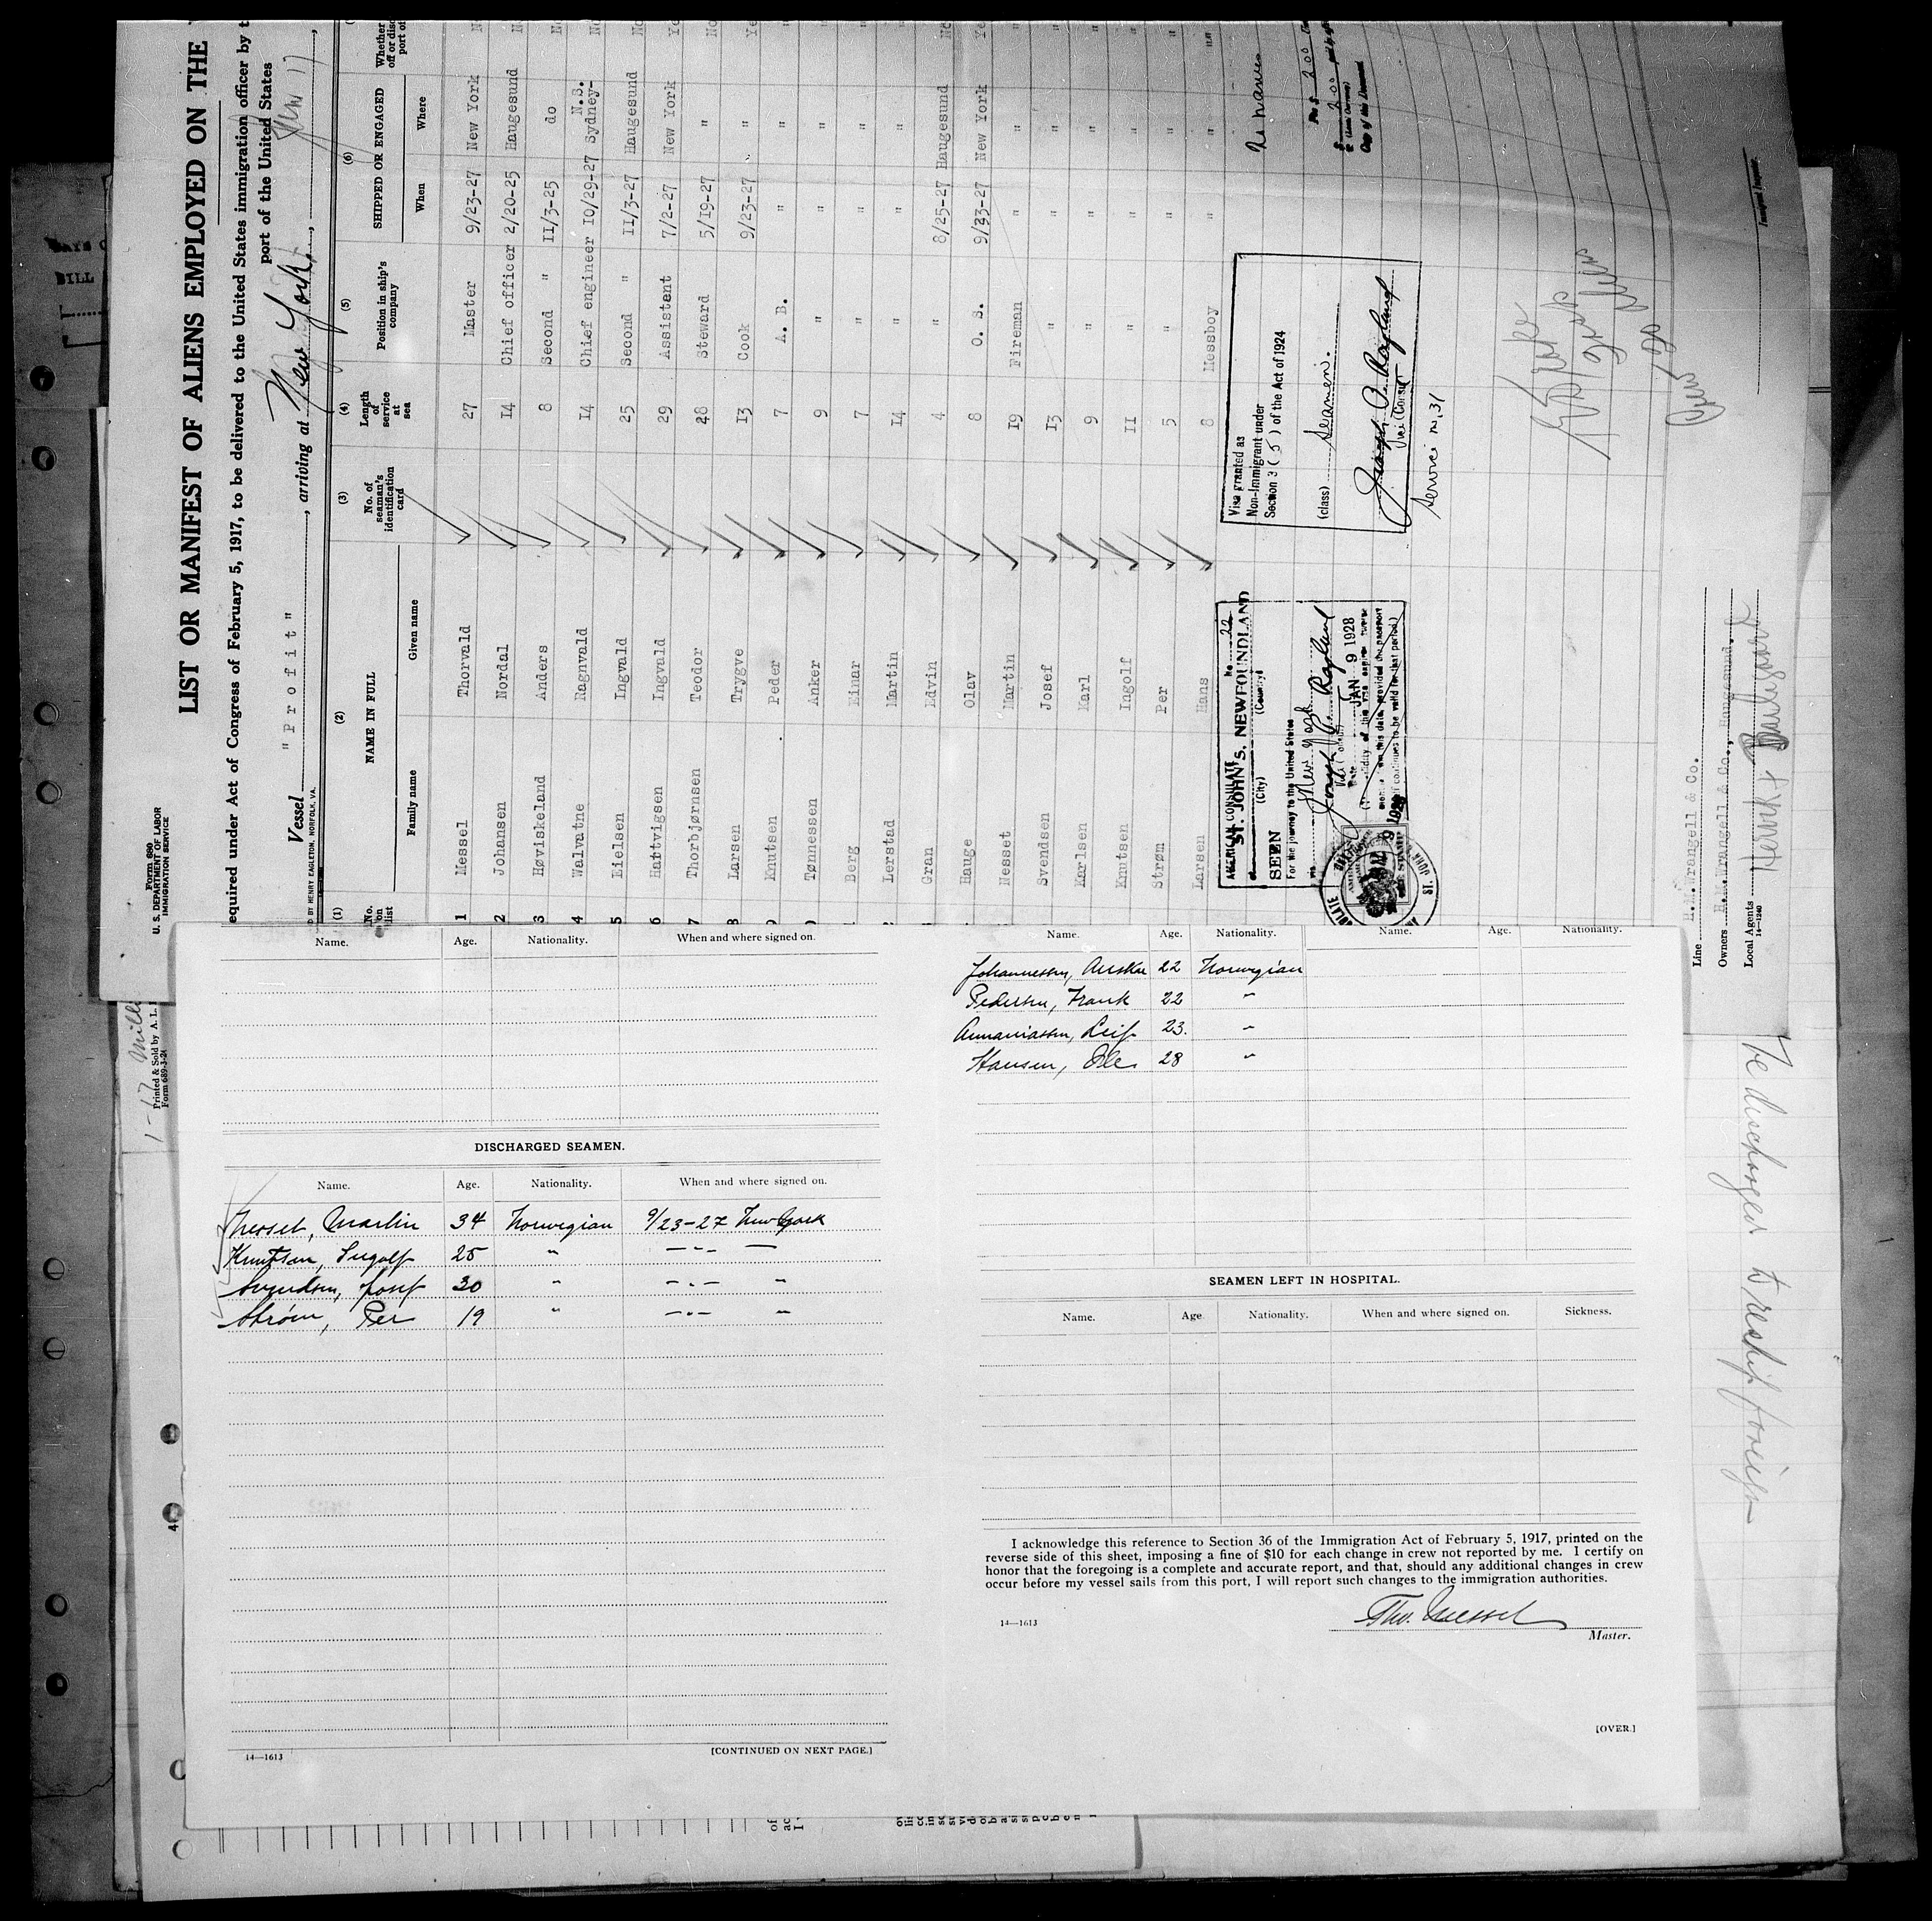 Form 680
U. S. DEPARTMENT OF LABOR
IMMIGRATION SERVICE
LIST OR MANIFEST OF ALIENS EMPLOYED ON THE
equired under Act of Congress of February 5, 1917, to be delivered to the United States immigration officer by t
port of the United States
Vessel "Profit", arriving at New York,
D BY HENRY EAGLETON, NORFOLK, VA.
(1) (2) (3) (4) (5) (6)
No. on list NAME IN FULL No. of seaman's identification card Length of service at sea Position in ship's company SHIPPED OR ENGAGED Whether
Family name Given name When Where
1 Messel Thorvald 27 Master 9/23-27 New York
2 Johansen Nordal 14 Chief officer 2/20-25 Haugesund
3 Høviskeland Anders 8 Second " 11/3-25 do
4 Walvatne Ragnvald 14 Chief engineer 10/29-27 Sydney- N.S.
5 Eielsen Ingvald 25 Second " 11/3-27 Haugesund
6 Hartvigsen Ingvald 29 Assistant 7/2-27 New York
7 Thorbjørnsen Teodor 28 Steward 5/19-27 "
8 Larsen Trygve 13 Cook 9/23-27 "
9 Knutsen Peder 7 A. B. " "
Tønnessen Anker 9 " " "
Berg Einar 7 " " "
Lerstad Martin 14 " " "
Gran Edvin 4 " 8/25-27 Haugesund
Hauge Olav 8 O. S. 9/23-27 New York
Nesset Martin 19 Fireman " "
Svendsen Josef 13 " " "
Karlsen Karl 9 " " "
Knutsen Ingolf 11 " " "
Strøm Per 5 " " "
Larsen Hans 8 Messboy " "
AMERICAN CONSULATE No. 22
ST. JOHN'S. NEWFOUNDLAND
(City) (Country)
SEEN
For the journey to the United States
New York
Joseph P. Ragland
Date JAN 9 1928
Visa granted as
Non-Immigrant under
Section 3 (5) of the Act of 1924
(class) Seamen.
Joseph P. Ragland
Vice Consul
Service no. 31
Line H.M.Wrangell & Co.
Owners H.M.Wrangell & Co., Haugesund.
Local Agents
14-1240
Immigrant Inspector.
To discharge & reship foreign
Printed & Sold by A. L.
Form 689-3-24
Name. Age. Nationality. When and where signed on.
DISCHARGED SEAMEN.
Name. Age. Nationality. When and where signed on.
Nesset, Martin 34 Norwegian 9/23-27 New York
Knutsen, Ingolf 25 " —"— —
Svendsen, Josef 30 " —"— "
Strøm, Per 19 " —"— "
14—1613 [CONTINUED ON NEXT PAGE.]
Name. Age. Nationality. Name. Age. Nationality.
Johannessen, Ansker 22 Norwegian
Pedersen, Frank 22 "
Annaniassen, Leif 23. "
Hansen, Ole 28 "
SEAMEN LEFT IN HOSPITAL.
Name. Age Nationality. When and where signed on. Sickness.
I acknowledge this reference to Section 36 of the Immigration Act of February 5, 1917, printed on the
reverse side of this sheet, imposing a fine of $10 for each change in crew not reported by me. I certify on
honor that the foregoing is a complete and accurate report, and that, should any additional changes in crew
occur before my vessel sails from this port, I will report such changes to the immigration authorities.
Tho. Messel
14—1613 Master.
[OVER.]